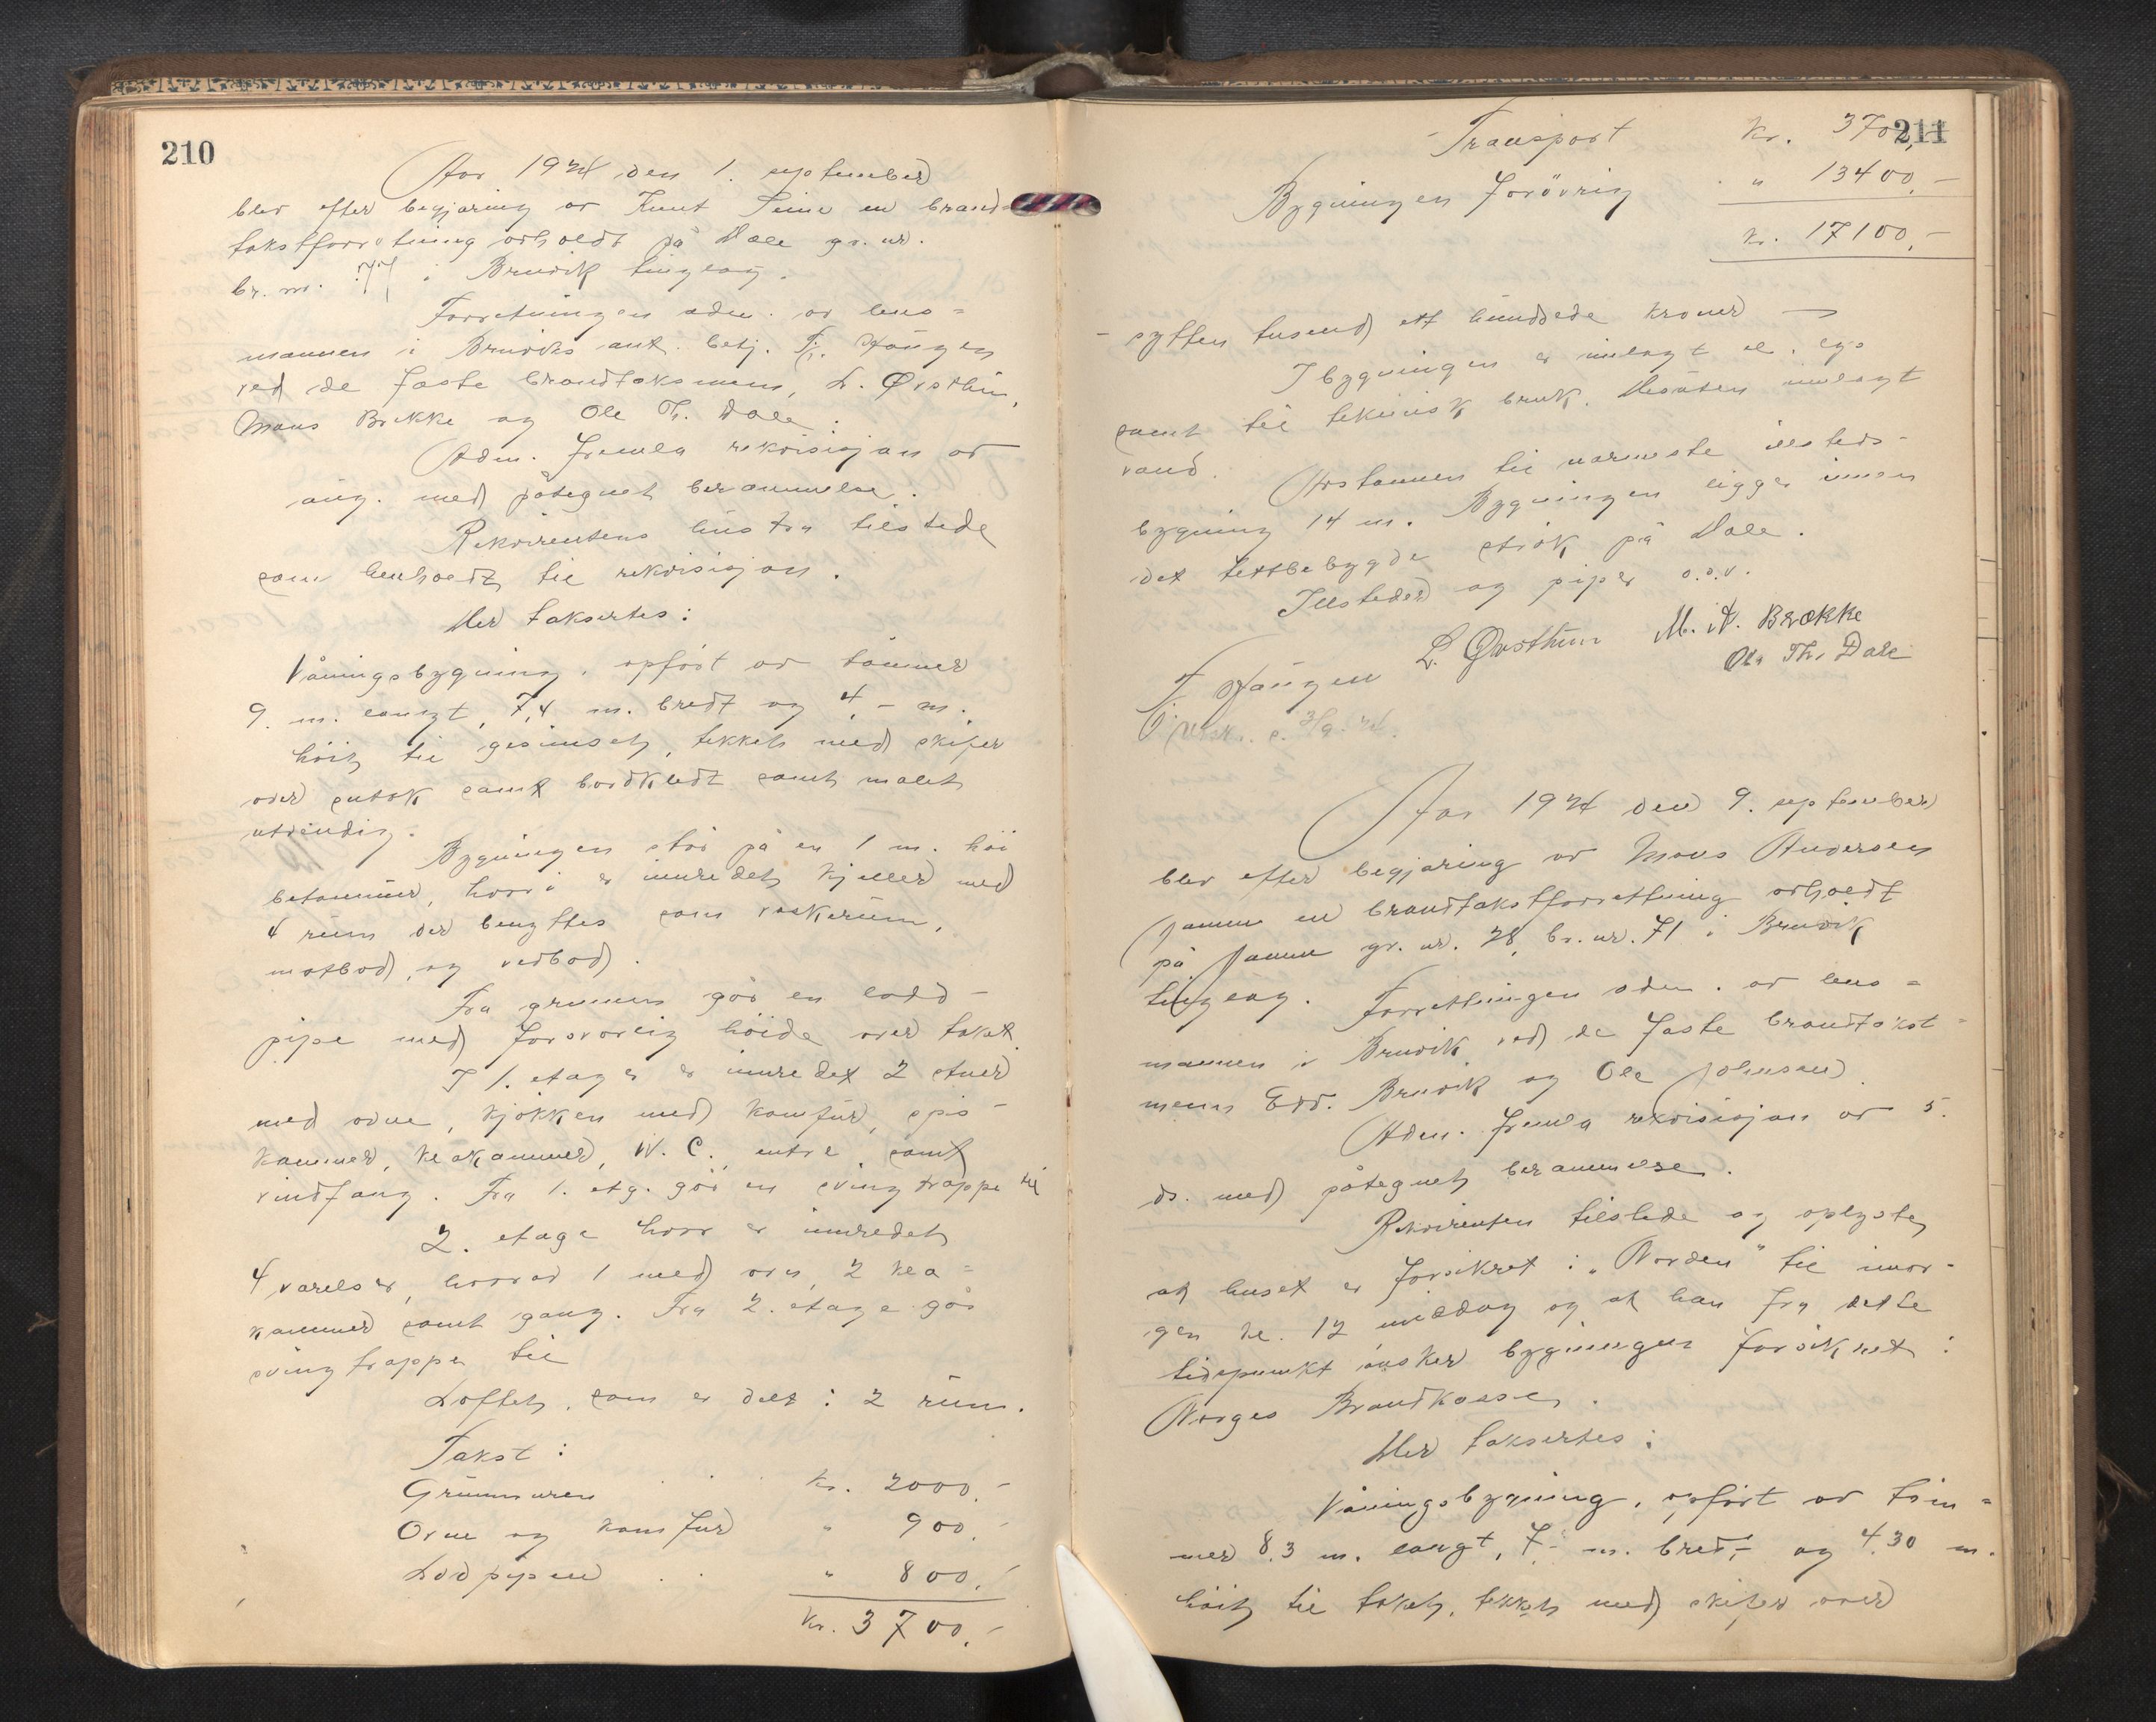 210
Aar 1924 den 1. september
blev efter begjæring av Knut Teine en brand-
takstforretning avholdt på Dale gr. nr.
br. nr. 77 i Bruvik tinglag.
Forretningen adm. av lens-
mannen i Bruviks aut. betj. Tj. Stangen
ved de faste brandtaksmenn, L. Øvsthun,
Mons Brekke og Ole Th. Dale.
Adm. fremla rekvisisjon av
aug. med påtegnet berammelse.
Rekvirentens hustru tilstede
som henholdt til rekvisisjon.
Her taksertes:
Våningsbygning, opført av tømmer
9 m. langt, 7,4 m. bredt og 4,- m.
høit til gesimset, tekket med skifer
over sutak samt bordkledt samt malet
utvendig.
Bygningen står på en 1 m. høi
betonmur, hvori er innredet kjeller med
4 rum der benyttes som vaskerum,
matbod, og vedbod.
Fra grunnen går en lodd-
pipe med forsvarlig høide over taket.
I 1. etage er innredet 2 stuer
med ovne, kjøkken med komfur, spis-
kammer, kleskammer, W. C., entre, samt
vindfang. Fra 1. etg. går en svingtrappe til
2. etage hvor er innredet
4 værelser, hvorav 1 med ovn, 2 kle-
kammer samt gang. Fra 2. etage går
svingtrappe til
Loftet, som er delt i 2 rum.
Takst:
Grunnmuren . . . kr. 2000,-
Ovne og komfur " 900,-
Lodpipen . . " 800,-
kr. 3700,-
211
Transport kr. 3700,-
Bygningen forøvrig . " 13400,-
kr. 17100,-
- sytten tusend ett hundrede kroner -
I bygningen er innlagt el. lys
samt til teknisk bruk. Desuten innlagt
vand. Avstannen til nærmeste illsteds-
bygning 14 m. Bygningen ligger innen
det tettbebygde strøk på Dale.
Illsteder og piper o.s.v.
L. Øvsthun M. A. Brække
T. Stangen Ole Th. Dale
Utsk. s. 3/9. 24.
Aar 1924 den 9. september
blev efter begjæring av Mons Andersen
Jamne en brandtakstforrettning avholdt
på Jamne gr. nr. 28, br. nr. 71 i Bruvik
tinglag. Forrettningen adm. av lens-
mannen i Bruvik ved de faste brandtakst-
menn Edv. Bruvik og Ole Johnsen.
Adm. fremla rekvisisjon av 5.
ds. med påtegnet berammelse.
Rekvirenten tilstede og oplyste
at huset er forsikret i "Norden" til imor-
gen kl. 12 middag og at han fra dette
tidspunkt ønsker bygningen forsikret i
Norges Brandkasse.
Her taksertes:
Våningsbygning, opført av tøm-
mer 8.3 m. langt, 7,- m. bred,- og 4.30 m.
høit til taket, tekket med skifer over